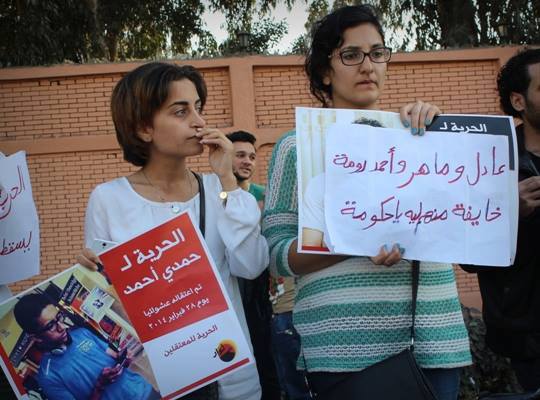 الحرية لـ
حمدي أحمد
تم اعتقاله عشوائيا
يوم ٢٨ فبراير ٢٠١٤
الحرية للمعتقلين
الحرية لـ
عادل وماهر وأحمد دومة
خايفة منهم ليه يا حكومة
الحرية
يسقط